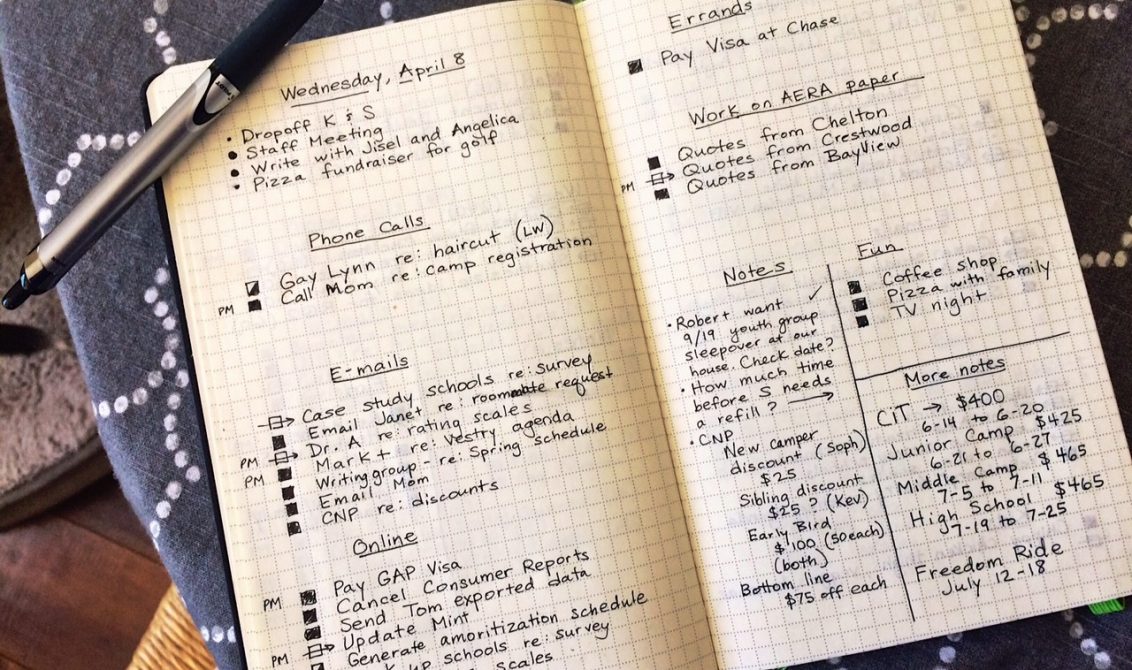 Wednesday, April 8
Dropoff K & S
Staff Meeting
Write with Jisel and Angelica
Pizza fundraiser for golf
Phone Calls
Gay Lynn re: haircut (LW)
PM Call Mom re: camp registration
E-mails
Case study schools re: survey
Email Janet re: roommate request
PM Dr. A re: rating scales
PM Mark + re: Vestry agenda
Writing group - re: Spring schedule
Email Mom
CNP re: discounts
Online
PM Pay GAP Visa
Cancel Consumer Reports
Send Tom exported data
Update Mint
PM Generate amoritization schedule
up schools re: survey
scales
Errands
Pay Visa at Chase
Work on AERA paper
Quotes from Chelton
PM Quotes from Crestwood
Quotes from BayView
Notes
Robert want
9/19 youth group
sleepover at our
house. Check date?
How much time
before S needs
a refill?
CNP
New camper
discount (Soph)
$25
Sibling discount
$25? (Kev)
Early Bird
$100 (50 each)
(both)
Bottom line
$75 off each
Fun
Coffee shop
Pizza with family
TV night
More notes
CiT → $400
6-14 to 6-20
Junior Camp $425
6-21 to 6-27
Middle Camp $465
7-5 to 7-11
High School $465
7-19 to 7-25
Freedom Ride
July 12-18